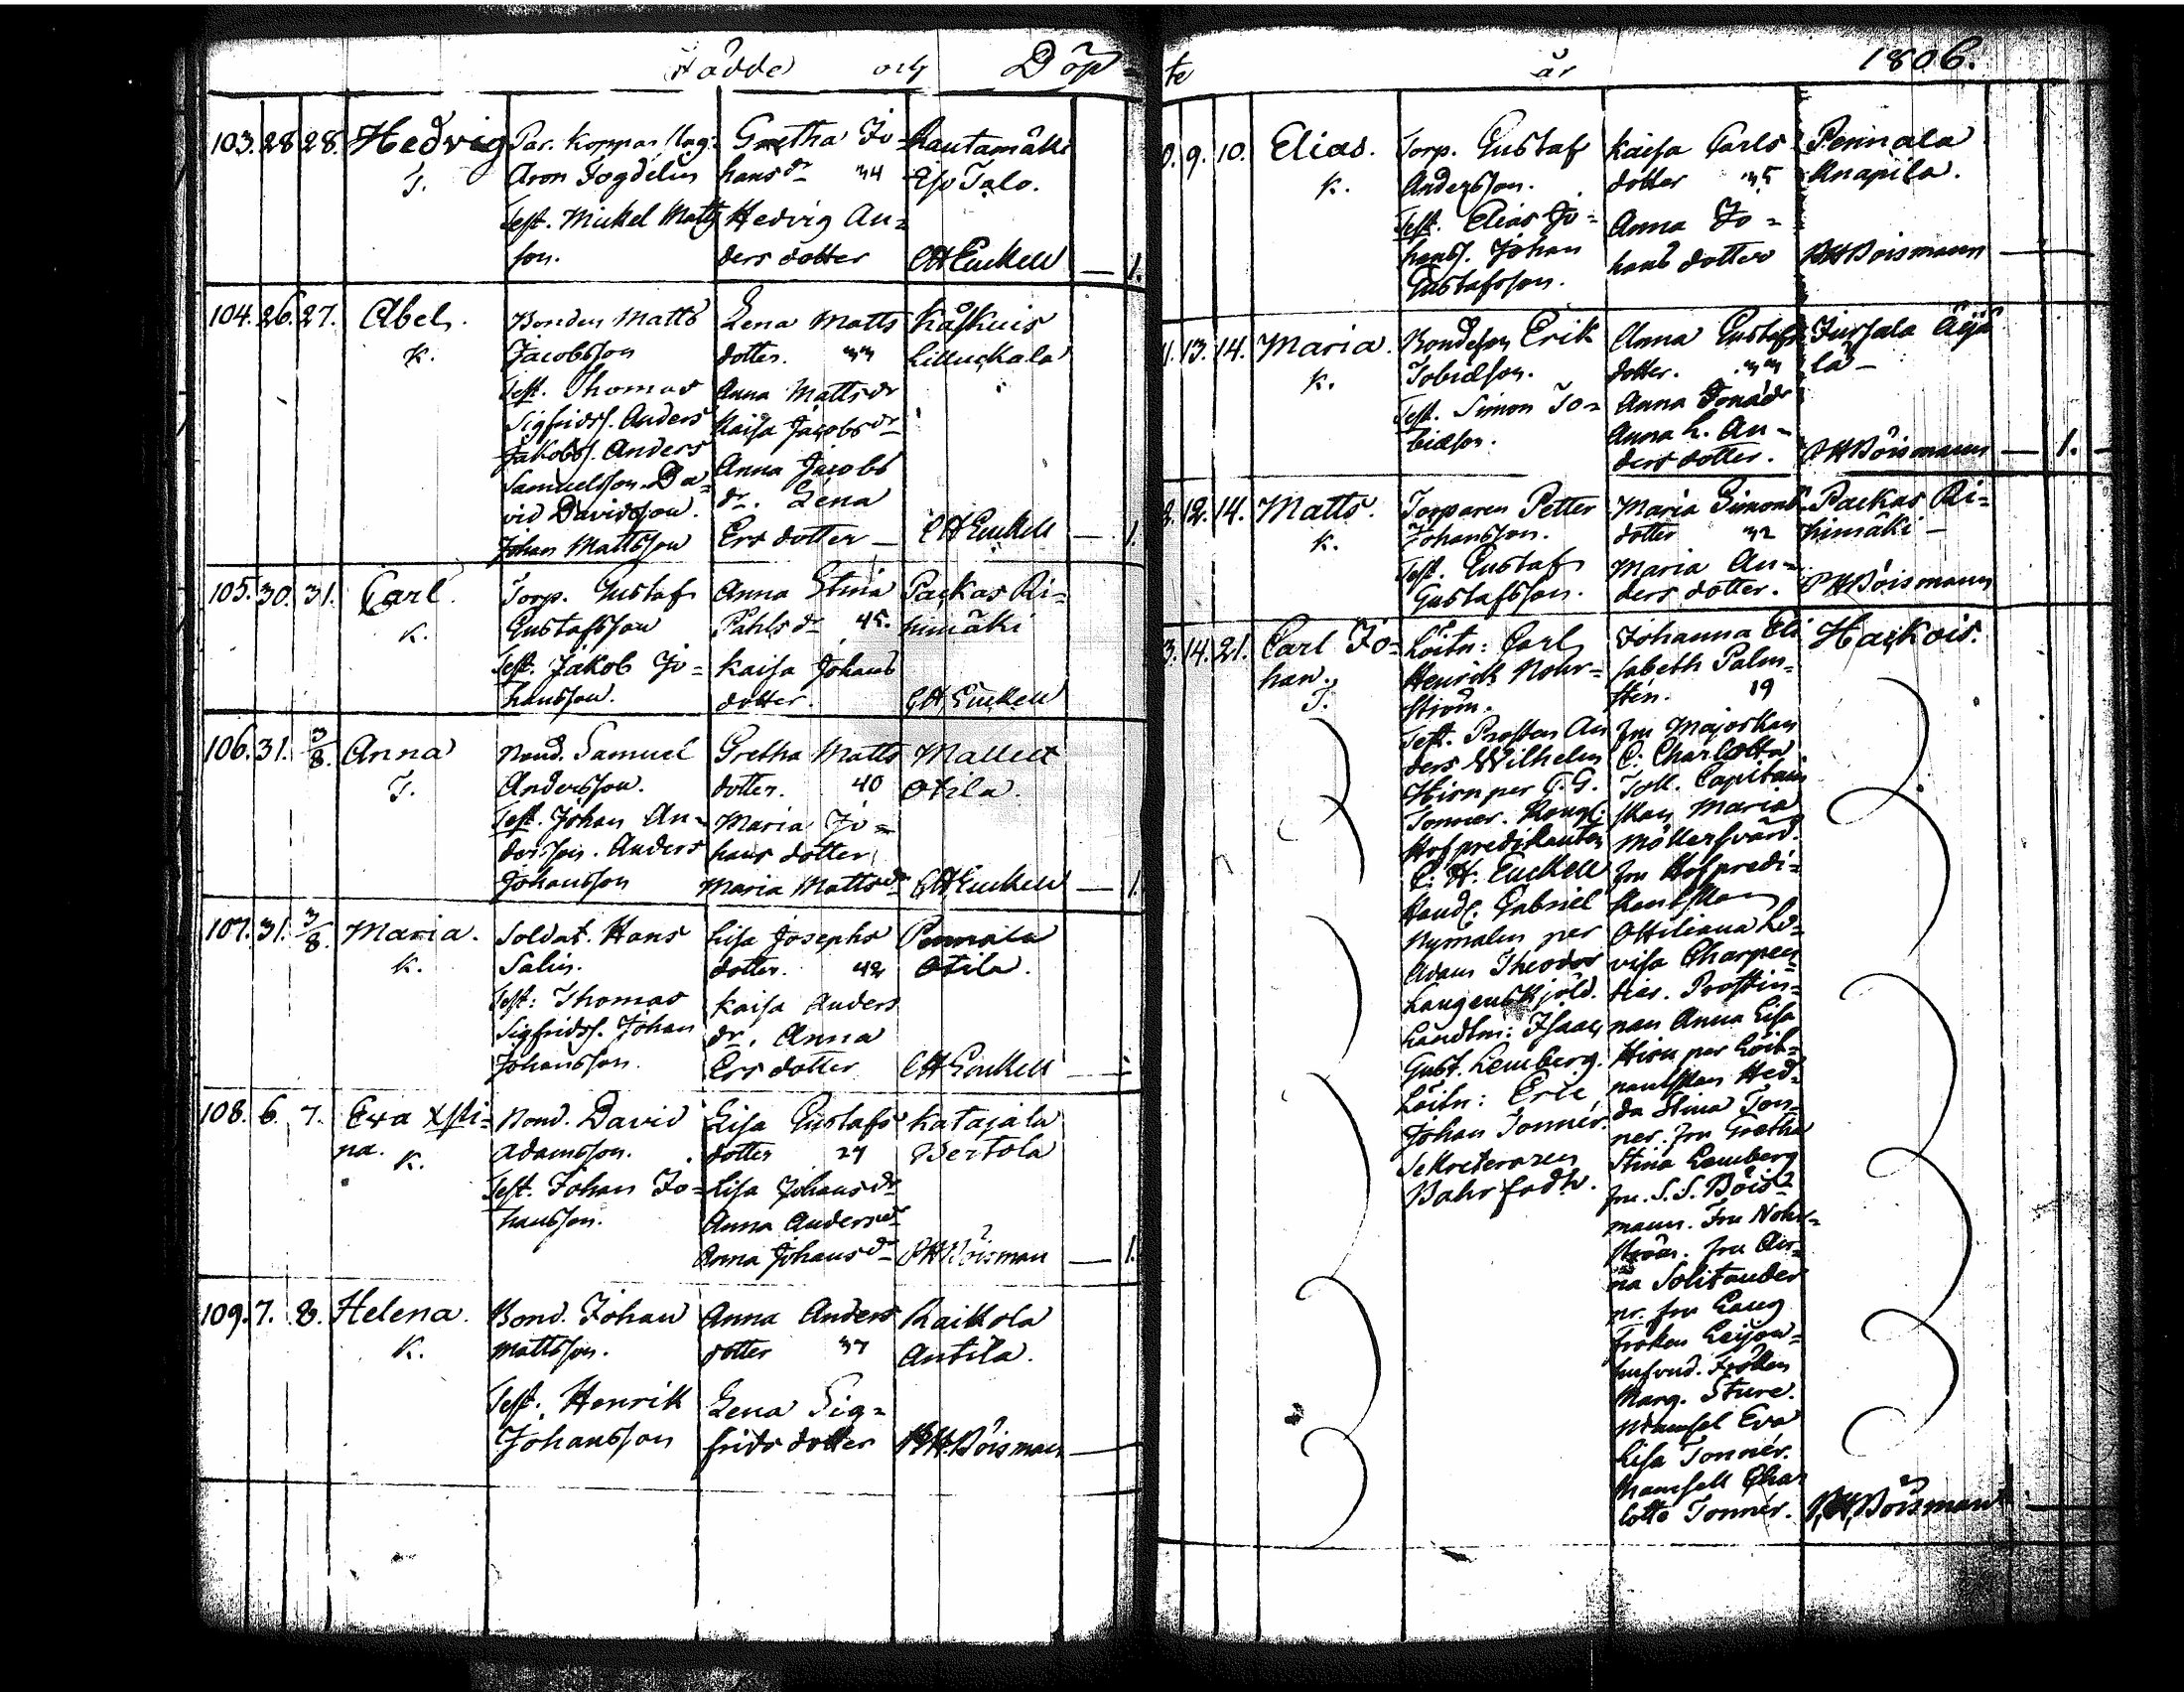 Födde och Döp-
103. 28 28. Hedvig
T.
Par. Kopparslag.
Aron Fogdelin
Test. Mickel Matts
son.
Gretha Jo-
hans dr 34
Hedvig An-
ders dotter
Rautamäki
Eso Talo.
CH Enckell — 1.
104. 26. 27. Abel.
K.
Bonden Matts
Jacobsson
Test. Thomas
Sigfridss. Anders
Jakobss. Anders
Samuelsson. Da-
vid Davidsson.
Johan Mattsson
Lena Matts
dotter. 33
Anna Matts dr
Kaisa Jacobs dr
Anna Jacobs
dr. Lena
Ers dotter —
Kåskuis
CH Enckell — 1.
105. 30. 31. Carl.
K.
Torp. Gustaf
Gustafsson
Test. Jakob Jo-
hansson.
Anna Stina
Påhls dr 45.
Kaisa Johans
dotter.
Packas Ri-
himäki
CH Enckell
106. 31. 3/8. Anna
T.
Bond. Samuel
Andersson.
Test. Johan An-
dersson. Anders
Johansson
Gretha Matts
dotter. 40
Maria Jo-
hans dotter
Maria Matts dr
Otila.
CH Enckell — 1.
107. 31. 3/8. Maria.
K.
Soldat. Hans
Salin.
Test: Thomas
Sigfridss. Johan
Johansson.
Lisa Josephs
dotter. 42
Kaisa Anders
dr. Anna
Ers dotter
Pennala
Otila.
CH Enckell
108. 6. 7. Eva Xsti-
na. K.
Bond. David
Adamsson.
Test. Johan Jo-
hansson.
Lisa Gustafs
dotter 27
Lisa Johans dr
Anna Anders dr
Anna Johans dr
Katajala
Bertola
PH Böisman — 1.
109. 7. 8. Helena.
K.
Bond. Johan
Mattsson.
Test. Henrik
Johansson
Anna Anders
dotter 37
Lena Sig-
frids dotter
Raikola
Antila.
PH. Böisman
te år 1806.
0. 9. 10. Elias.
K.
Torp. Gustaf
Andersson.
Test. Elias Jo-
hanss. Johan
Gustafsson.
Kaisa Carls
dotter 35
Anna Jo-
hans dotter
Pennala
Anapila.
PH Böismann
1. 13. 14. Maria.
K.
Bondeson Erik
Tobiasson.
Test. Simon To-
biasson.
Anna Gustafs
dotter. 33
Anna Jonæ dr
Anna L. An-
ders dotter.
Jussala Äijä
lä —
PH Böismann — 1. —
2. 12. 14. Matts.
K.
Torparen Petter
Johansson.
Test. Gustaf
Gustafsson.
Maria Simons
dotter 32
Maria An-
ders dotter.
Packas Ri-
himäki —
PH Böismann
3. 14. 21. Carl Jo-
han.
T.
Löitn: Carl
Henrik Nohr-
ström.
Test. Prosten An
ders Wilhelm
Hirn per C. G.
Tonner. Kongl.
Hofpredikanten
C. H. Enckell
Handl. Gabriel
Nymalm per
Adam Theodor
Langenskjöld.
Landtm: Isaac
Gust. Lemberg.
Löitn: Eric
Johan Tonnér.
Sekreteraren
Johanna Eli
sabeth Palm-
sten. 19
fru Majorskan
C. Charlotta
Toll. Capitain
skan Maria
Möllersvärd.
fru Hofpredi-
kantskan
Ottiliana Lo-
visa Charpen-
tier. Prostin-
nan Anna Lisa
Hirn per Löit-
nantskan Hed-
da Stina Ton-
ner. fru Gretha
Stina Lemberg
fru. S. S. Böis-
mann. fru Nohr-
ström. fru An-
na Solitander
nr. fru Lang
fröken Leijon-
hufvud. Fröken
Marg. Sture.
Mamsel Eva
Lisa Tonnér.
Mamsell Char
lotte Tonnér.
Haikois.
P. H. Böismann